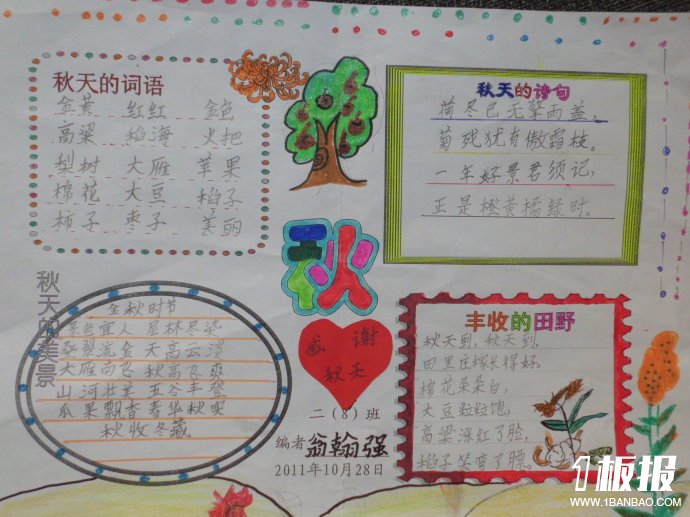 秋天的词语
金黄 红红 金色
高梁 稻海 火把
梨树 大雁 苹果
棉花 大豆 稻子
柿子 枣子 美丽
秋天的诗句
荷尽已无擎雨盖，
菊残犹有傲霜枝。
一年好景君须记，
正是橙黄橘绿时。
秋
秋天的美景
金秋时节
景色宜人 层林尽染
叠翠流金 天高云淡
大雁南飞 秋高气爽
山河壮美 五谷丰登
瓜果飘香 春华秋实
秋收冬藏
感谢
秋天
二（8）班
编者 翁翰强
2011年10月28日
丰收的田野
秋天到，秋天到，
田里庄稼长得好。
棉花朵朵白，
大豆粒粒饱，
高梁涨红了脸，
稻子笑弯了腰。
1板报
WWW.1BANBAO.COM